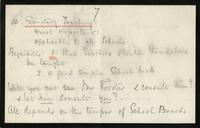 10 Sanitary Teaching
most important
applicable to all Schools
Requisites 1. that Teachers should themselves
be taught
2. a good simple School book
Will you not see Mr Foster & consult him?
& let him consult you?
All depends on the temper of School Boards